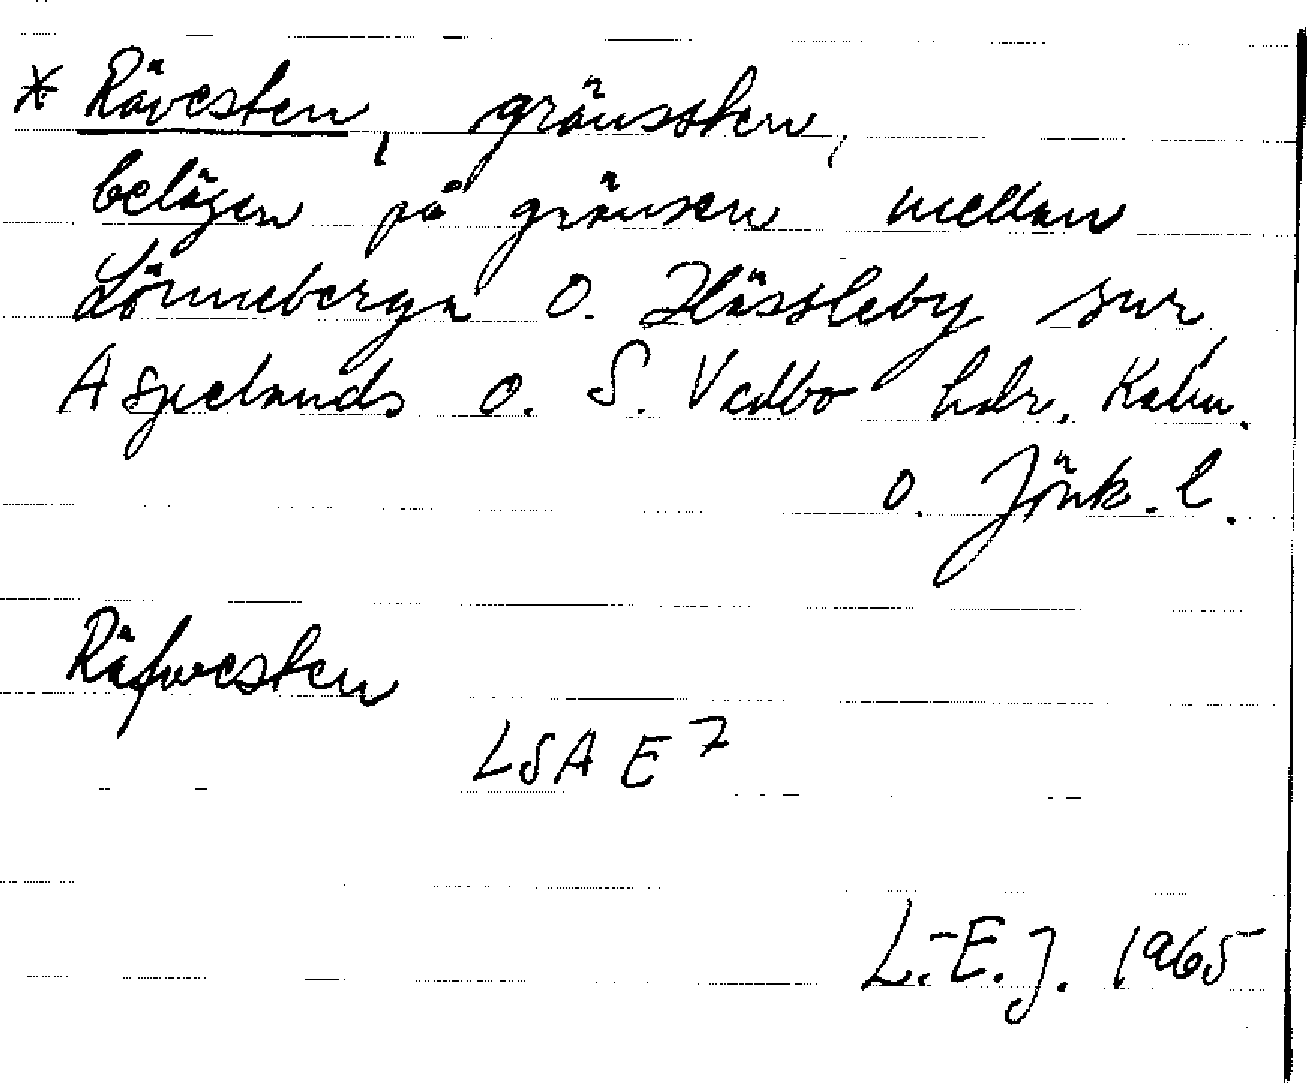 * Rävesten, gränssten,
belägen på gränsen mellan
Lönneberga o. Hässleby snr
Aspelands o. S. Vedbo hdr. Kalm.
o. Jönk. l.
Räfwesten
LSA E 7
L.-E. J. 1965